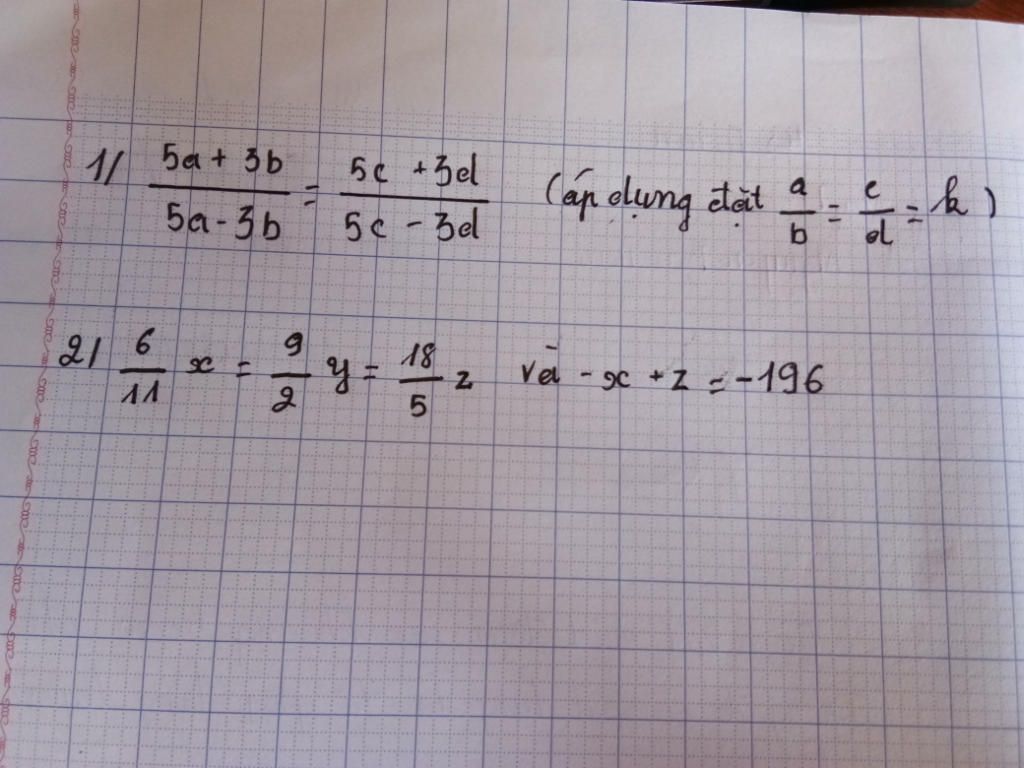 1/ (5a + 3b)/(5a - 3b) = (5c + 3d)/(5c - 3d) (áp dụng đặt a/b = c/d = k)
2/ 6/11 x = 9/2 y = 18/5 z và - x + z = -196